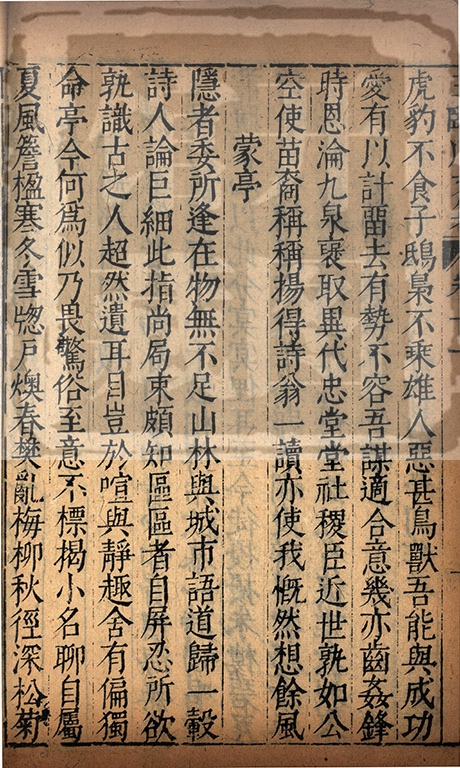 虎豹不食子鴟梟不乘雄人惡甚鳥獸吾能與成功
愛有以計畱去有勢不容吾謀適合意幾亦齒姦鋒
時恩淪九泉襃取異代忠堂堂社稷臣近世孰如公
空使苗裔稱稱揚得詩翁一讀亦使我慨然想餘風
蒙亭
隱者委所逢在物無不足山林與城市語道歸一轂
詩人論巨細此指尚局束頗知區區者自屏忍所欲
孰識古之人超然遺耳目豈於喧與靜趣舍有偏獨
命亭今何爲似乃畏驚俗至意不標揭小名聊自屬
夏風簷楹寒冬雪牎戶燠春樊亂梅柳秋徑深松菊